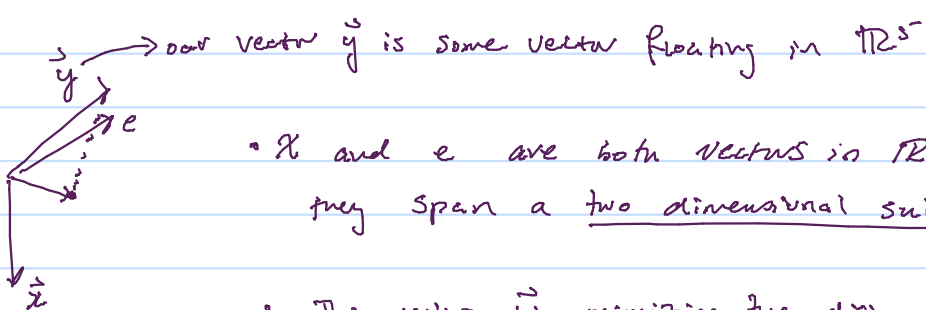 y⃗ → our vector y⃗ is some vector floating in ℝ⁵
e
• X and e are both vectors in ℝ
they span a two dimensional
x⃗